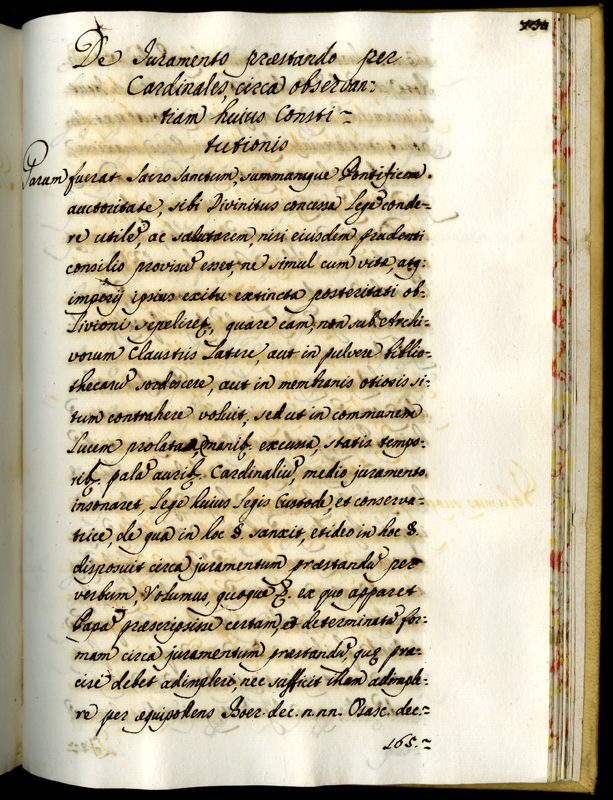 De Juramento præstando per
Cardinales, circa observan=
tiam huius Consti=
tutionis
Parum fuerat Sacro Sanctum, summamque Pontificem
auctoritate, sibi Divinitus concessa Legẽ conde=
re utilẽ, ac salutarem, nisi eiusdem prudenti
consilio provisũ esset, ne simul cum vita, atq:
imperij ipsius exitu extincta posteritati ob=
livioni sepeliret, quare eam, non sub Archi=
vorum Claustris Latere, aut in pulvere biblio=
thecarũ sordescere, aut in membranis otiosis si=
tum contrahere voluit, sed ut in communem
Lucem prolata manib. excussa, statis tempo=
rib. palã aurib. Cardinaliũ, medio juramento
insonaret, Lege huius legis Custode, et conserva=
trice, de qua in loc §. sanxit, et ideo in hoc §.
disposuit circa juramentum præstandũ per
verbum, Volumus quoque §. ex quo apparet
Papã præscripsisse certam, et determinatã for=
mam circa juramentum præstandũ quę præ=
cisè debet adimpleri, nec sufficit illam adimple=
re per æquipollens Boer. dec. n. nn. Osasc. dec.=
165.=